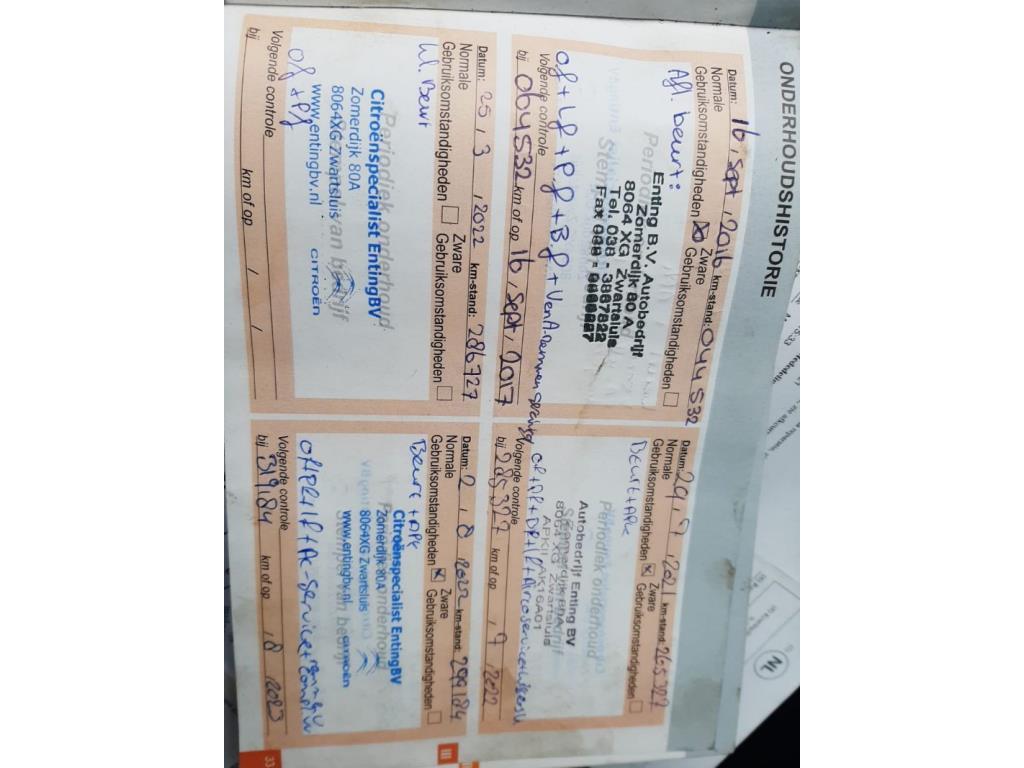 ONDERHOUDSHISTORIE
Datum: 16, sept, 2016 km-stand: 044532
Normale Zware
Gebruiksomstandigheden Gebruiksomstandigheden
Afl. beurt:
Enting B.V. Autobedrijf
Zomerdijk 80 A
8064 XG - Zwartsluis
Tel. 038 - 3867822
Fax 038 -
of + lf + P.f + B f + Ven
Volgende controle
bij 064532 km of op 16, sept, 2017
Datum: 29, 7, 2021 km-stand: 265327
Normale Zware
Gebruiksomstandigheden Gebruiksomstandigheden
Beurt + APK
Periodiek onderhoud
Autobedrijf Enting BV
Zomerdijk 80A
8064 XG Zwartsluis
APKII AK16A01
Volgende controle
bij 285327 km of op , 7, 2022
Datum: 25, 3, 2022 km-stand: 286727
Normale Zware
Gebruiksomstandigheden Gebruiksomstandigheden
kl. Beurt
Periodiek onderhoud
Citroënspecialist EntingBV
Zomerdijk 80A
8064XG Zwartsluis
Stempel van bedrijf
www.entingbv.nl CITROËN
of + Pf
Volgende controle
bij km of op / /
Datum: 2, 8, 2022 km-stand: 299184
Normale Zware
Gebruiksomstandigheden Gebruiksomstandigheden
Beurt + APK
Citroënspecialist EntingBV
Zomerdijk 80A
8064XG Zwartsluis
www.entingbv.nl CITROËN
Volgende controle
bij 319184 km of op , 8, 2023
III
33
NL